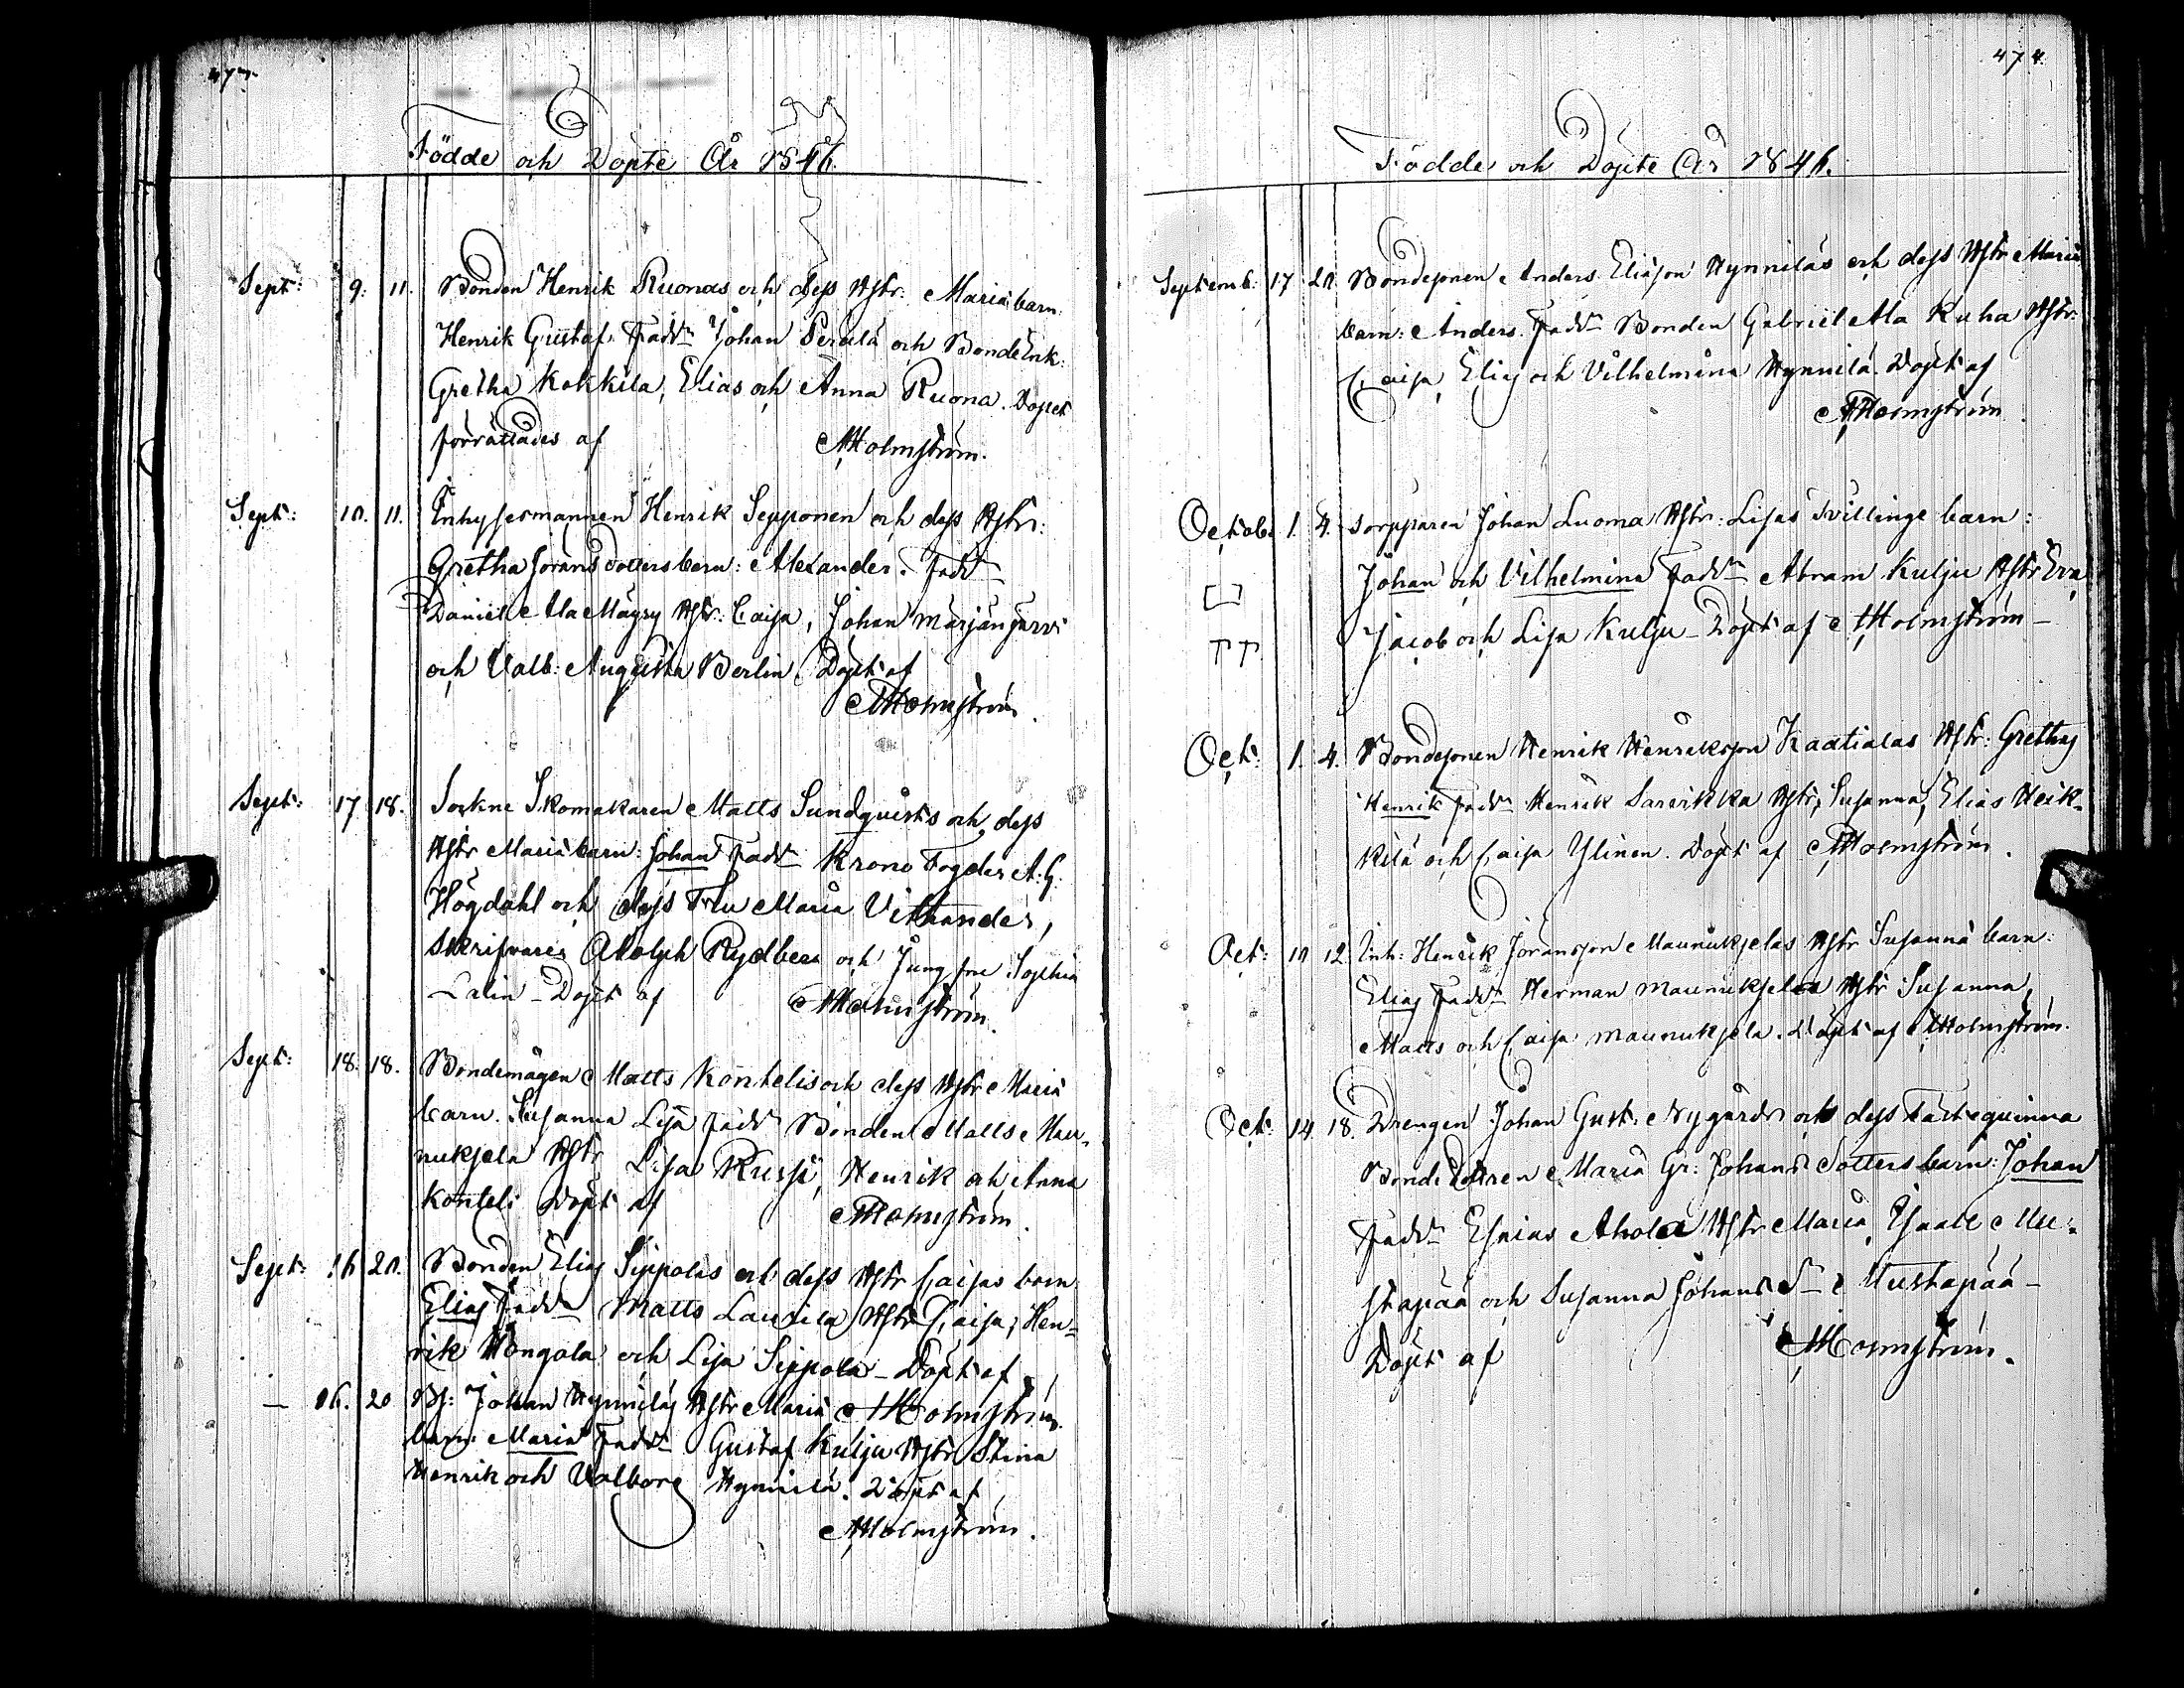 473.
Födde och Döpte År 1846.
Sept: 9. 11. Bonden Henrik Ruonas och dess Hstr: Marias barn:
Henrik Gustaf. Fadd. Johan Perälä och BondeEnk:
Gretha Kokkila, Elias och Anna Ruona. Döpet
förrättades af AHolmström.
Sept: 10. 11. Inhysesmannen Henrik Sepponen och dess Hstr:
Gretha Jöransdotters barn: Alexander. Fadd.
Daniel Ala Mäyry Hstr: Caisa, Johan Marjanjärvi
och Valb: Augusta Berlin. Döpt af
AHolmström.
Sept: 17 18. Sockne Skomakaren Matts Sundqvists och dess
Hstr Marias barn: Johan Fadd. Krono Fogden A: G.
Högdahl och dess Fru Maria Vithander,
Skrifvaren Adolph Rydberg och Jungfru Sophia
Calin - Döpt af AHolmström.
Sept: 18. 18. Bondemågen Matts Kontelis och dess Hstr Marias
barn. Susanna Lisa Fadd. Bonden Matts Mau-
nuksela Hstr Lisa Russi, Henrik och Anna
Konteli Döpt af AHolmström.
Sept: 16 20. Bonden Elias Sippolas och dess Hstr Caisas barn
Elias Fadd. Matts Laurila Hstr Caisa, Hen-
rik Hongola och Lisa Sippola - Döpt af
AHolmström.
— 16. 20 Bs: Johan Hynniläs Hstr Marias
barn: Maria Fadd. Gustaf Kulju Hstr Stina
Henrik och Valborg Hynnilä. Döpt af
AHolmström.
474.
Födde och Döpte År 1846.
Septemb: 17 20. Bondesonen Anders Eliasson Hynniläs och dess Hstr Marias
barn: Anders. Fadd. Bonden Gabriel Ala Kuha Hstr:
Caisa, Elias och Vilhelmina Hynnilä. Döpt af
AHolmström.
October 1. 4. Torpparen Johan Luoma Hstr: Lisas Tvillinge barn:
Johan och Vilhelmina Fadd. Abram Kulju Hstr Eva
Jacob och Lisa Kulju - Döpt af AHolmström -
Oct: 1. 4. Bondesonen Henrik Henriksson Kaatialas Hstr: Grethas
Henrik Fadd. Henrik Sarvikka Hstr, Susanna, Elias Heik-
kilä och Caisa Ylinen. Döpt af AHolmström.
Oct: 10 12 Inh: Henrik Jöransson Maunukselas Hstr Susannas barn:
Elias Fadd. Herman Maunuksela Hstr Susanna,
Matts och Caisa Maunuksela. Döpt af AHolmström.
Oct: 14. 18. Drengen Johan Gust: Nygårds och dess Fästeqvinna
Bonde Dottren Maria Gr: Johans dotters barn: Johan
Fadd. Esaias Ahola Hstr Maria, Isaak Mu-
stapää och Susanna Johans D. Mustapää -
Döpt af AHolmström.